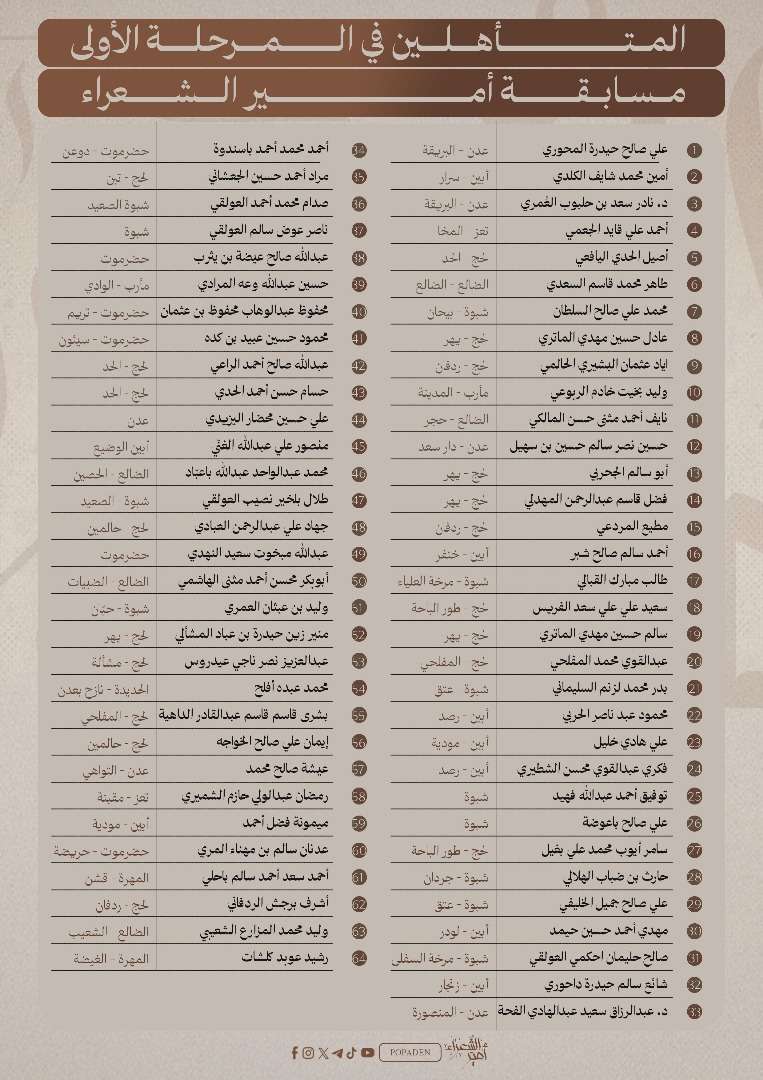 المتأهلين في المرحلة الأولى
مسابقة أمير الشعراء
1 علي صالح حيدرة المحوري عدن - البريقة
2 أمين محمد شايف الكلدي أبين - سرار
3 د. نادر سعد بن حلبوب العمري عدن - البريقة
4 أحمد علي قايد الجعمي تعز - المخا
5 أصيل الحدي اليافعي لحج - الحد
6 طاهر محمد قاسم السعدي الضالع - الضالع
7 محمد علي صالح السلطان شبوة - بيحان
8 عادل حسين مهدي الماتري لحج - يهر
9 اياد عثمان البشيري الحالمي لحج - ردفان
10 وليد بخيت خادم الربوعي مأرب - المدينة
11 نايف أحمد مثنى حسن المالكي الضالع - حجر
12 حسين نصر سالم حسين بن سهيل عدن - دار سعد
13 أبو سالم الجحربي لحج - يهر
14 فضل قاسم عبدالرحمن المهدلي لحج - يهر
15 مطيع المردعي لحج - ردفان
16 أحمد سالم صالح شبر أبين - خنفر
17 طالب مبارك القبالي شبوة - مرخة العلياء
18 سعيد علي علي سعد الفريس لحج - طور الباحة
19 سالم حسين مهدي الماتري لحج - يهر
20 عبدالقوي محمد المفلحي لحج - المفلحي
21 بدر محمد لزنم السليماني شبوة - عتق
22 محمود عبد ناصر الحربي أبين - رصد
23 علي هادي خليل أبين - مودية
24 فكري عبدالقوي محسن الشطيري أبين - رصد
25 توفيق أحمد عبدالله فهيد شبوة
26 علي صالح باعوضة شبوة
27 سامر أيوب محمد علي بقيل لحج - طور الباحة
28 حارث بن ضباب الهلالي شبوة - جردان
29 علي صالح جميل الخليفي شبوة - عتق
30 مهدي أحمد حسين حيمد أبين - لودر
31 صالح حليمان احكمي العولقي شبوة - مرخة السفلى
32 شائع سالم حيدرة داحوري أبين - زنجبار
33 د. عبدالرزاق سعيد عبدالهادي الفحة عدن - المنصورة
34 أحمد محمد أحمد باسندوة حضرموت - دوعن
35 مراد أحمد حسين الجعشاني لحج - تبن
36 صدام محمد أحمد العولقي شبوة الصعيد
37 ناصر عوض سالم العولقي شبوة
38 عبدالله صالح عيضة بن يثرب حضرموت
39 حسين عبدالله وعه المرادي مأرب - الوادي
40 محفوظ عبدالوهاب محفوظ بن عثمان حضرموت - تريم
41 محمود حسين عبيد بن كده حضرموت - سيئون
42 عبدالله صالح أحمد الراعي لحج - الحد
43 حسام حسن أحمد الحدي لحج - الحد
44 علي حسين محضار اليزيدي عدن
45 منصور علي عبدالله الغني أبين الوضيع
46 محمد عبدالواحد عبدالله باعبّاد الضالع - الحصين
47 طلال بلخير نصيب العولقي شبوة - الصعيد
48 جهاد علي عبدالرحمن العبادي لحج - حالمين
49 عبدالله مبخوت سعيد النهدي حضرموت
50 أبوبكر محسن أحمد مثنى الهاشمي الضالع - الضبيات
51 وليد بن عيثان العمري شبوة - حبّان
52 منير زين حيدرة بن عباد المشألي لحج - يهر
53 عبدالعزيز نصر ناجي عيدروس لحج - مشألة
54 محمد عبده أفلح الحديدة - نازح بعدن
55 بشرى قاسم قاسم عبدالقادر الداهية لحج - المفلحي
56 إيمان علي صالح الخواجه لحج - حالمين
57 عيشة صالح محمد عدن - التواهي
58 رمضان عبدالولي حازم الشميري تعز - مقبنة
59 ميمونة فضل أحمد أبين - مودية
60 عدنان سالم بن مهناء المري حضرموت - حريضة
61 أحمد سعد أحمد سالم باحلي المهرة - قشن
62 أشرف برجش الردفاني لحج - ردفان
63 وليد محمد المزارع الشعيبي الضالع - الشعيب
64 رشيد عوبد كلشات المهرة - الغيضة
أمير الشعراء
POPADEN